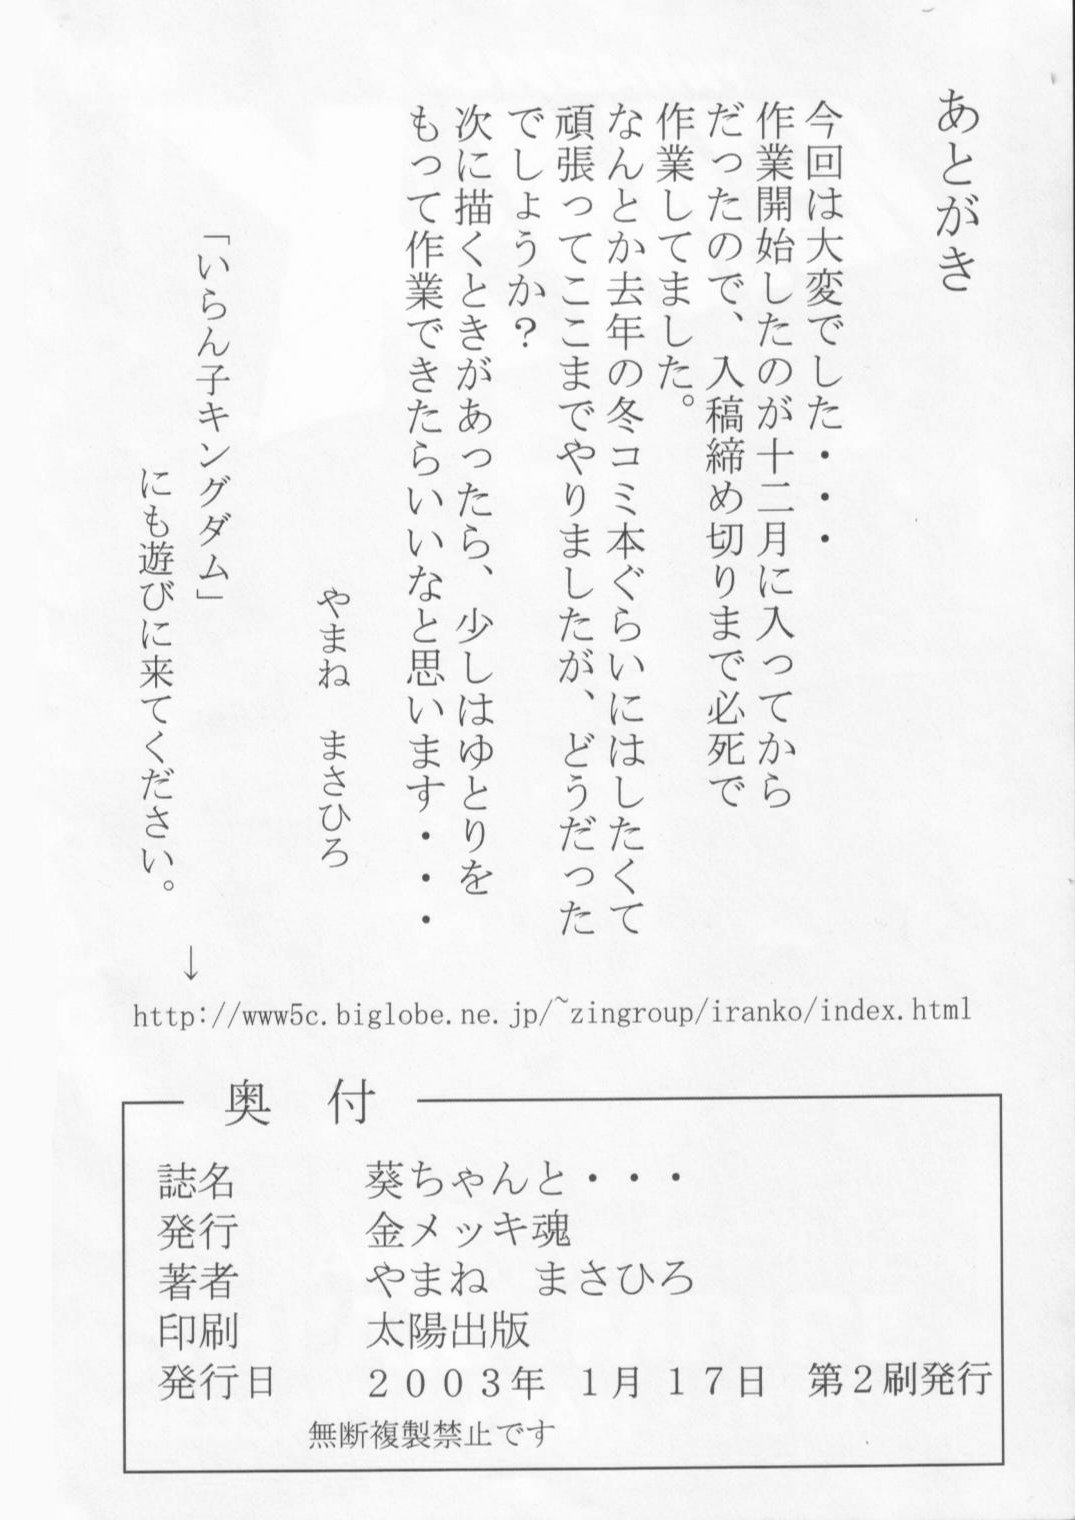 あとがき
今回は大変でした・・・
作業開始したのが十二月に入ってから
だったので、入稿締め切りまで必死で
作業してました。
なんとか去年の冬コミ本ぐらいにはしたくて
頑張ってここまでやりましたが、どうだった
でしょうか？
次に描くときがあったら、少しはゆとりを
もって作業できたらいいなと思います・・・
やまね　まさひろ
「いらん子キングダム」
にも遊びに来てください。
↓
http://www5c.biglobe.ne.jp/~zingroup/iranko/index.html
奥　付
誌名　葵ちゃんと・・・
発行　金メッキ魂
著者　やまね　まさひろ
印刷　太陽出版
発行日　２００３年　１月１７日　第２刷発行
無断複製禁止です